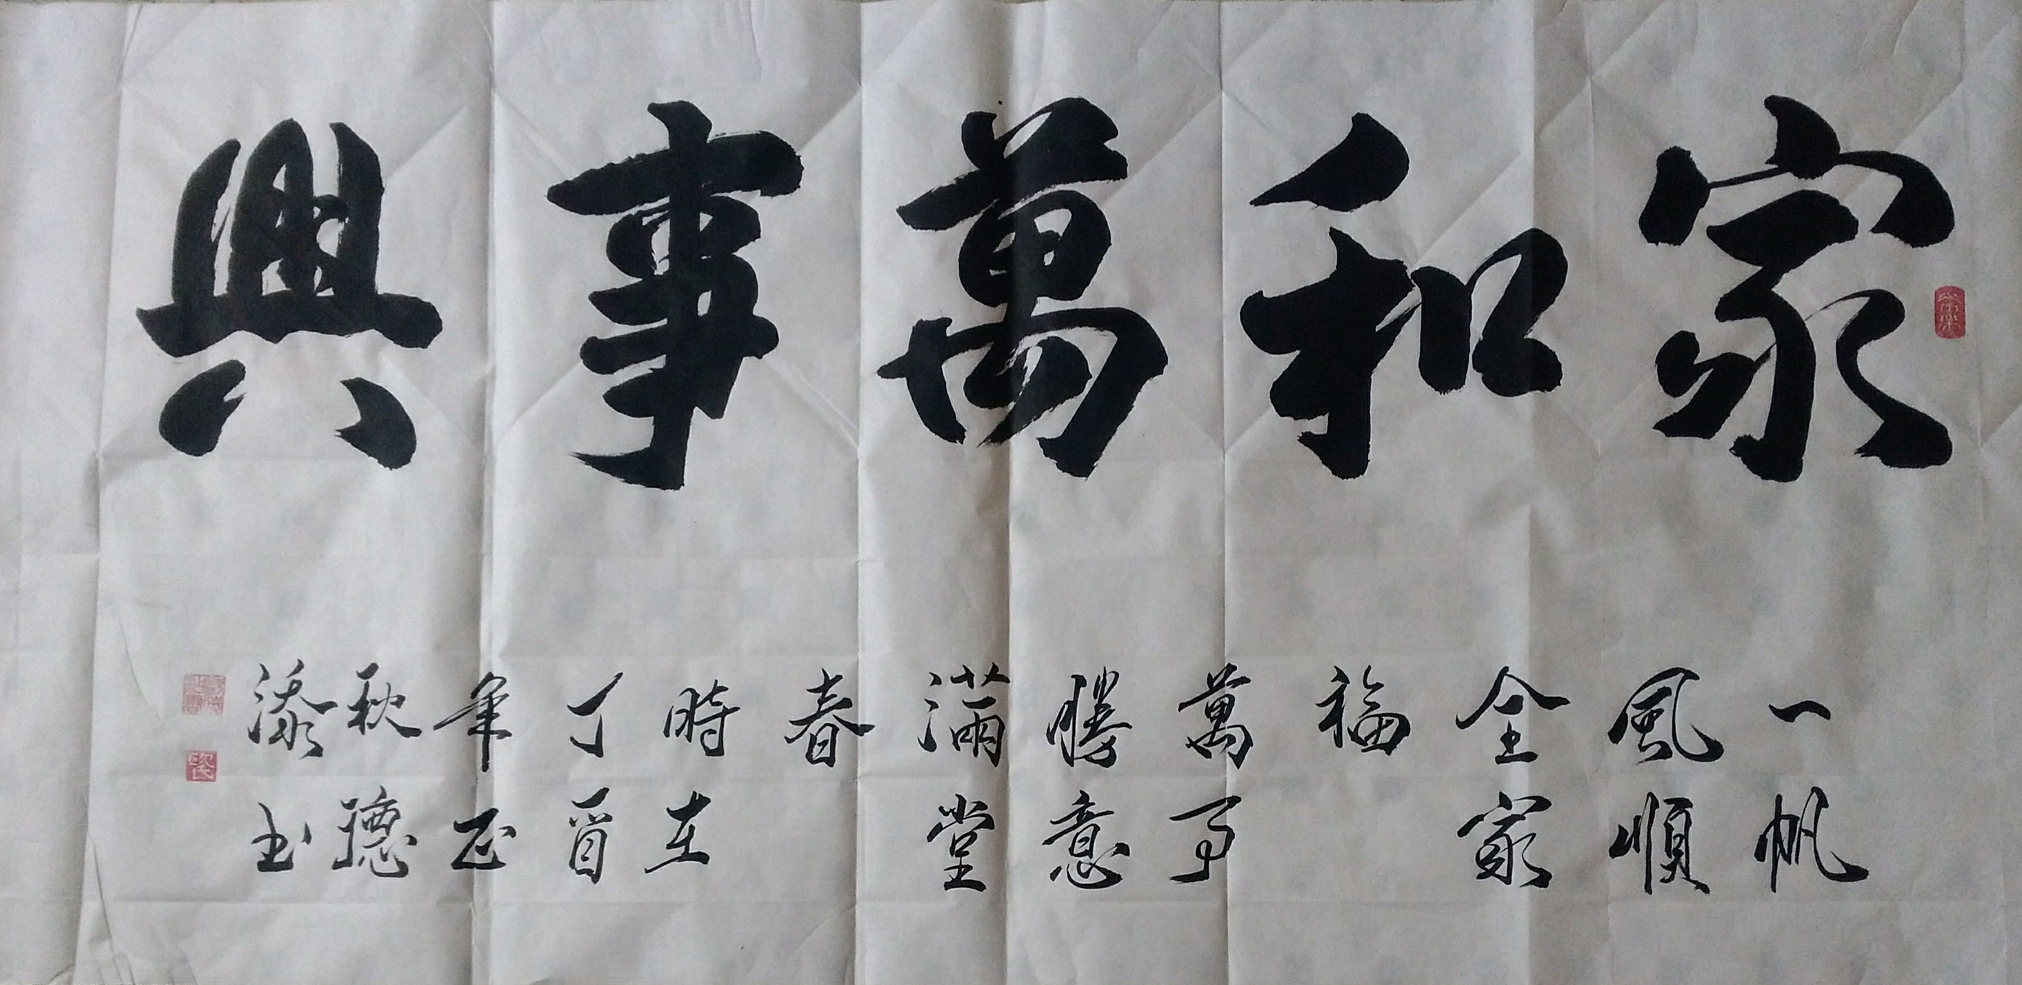 家和萬事興
一帆
風順
全家
福
萬事
勝意
滿堂
春
時在
丁酉
年正
秋德
添書